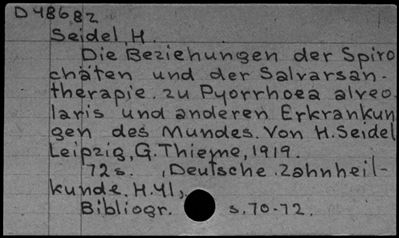 D486,82
Seidel, H.
Die Beziehungen der Spiro
chäten und der Salvarsan-
therapie zu Pyorrhoea alveo
laris und anderen Erkrankun
gen des Mundes. Von H. Seidel
Leipzig, G. Thieme, 1919.
72s. (Deutsche Zahnheil-
kunde. H. 41)
Bibliogr. s. 70-72.